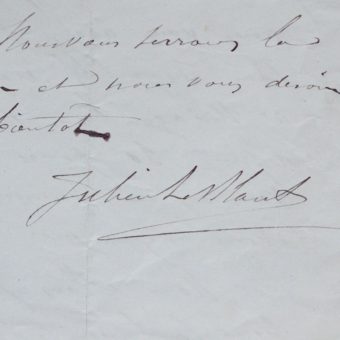 Nous vous serrons la
et nous vous disons
bientôt
Julien Le Blant